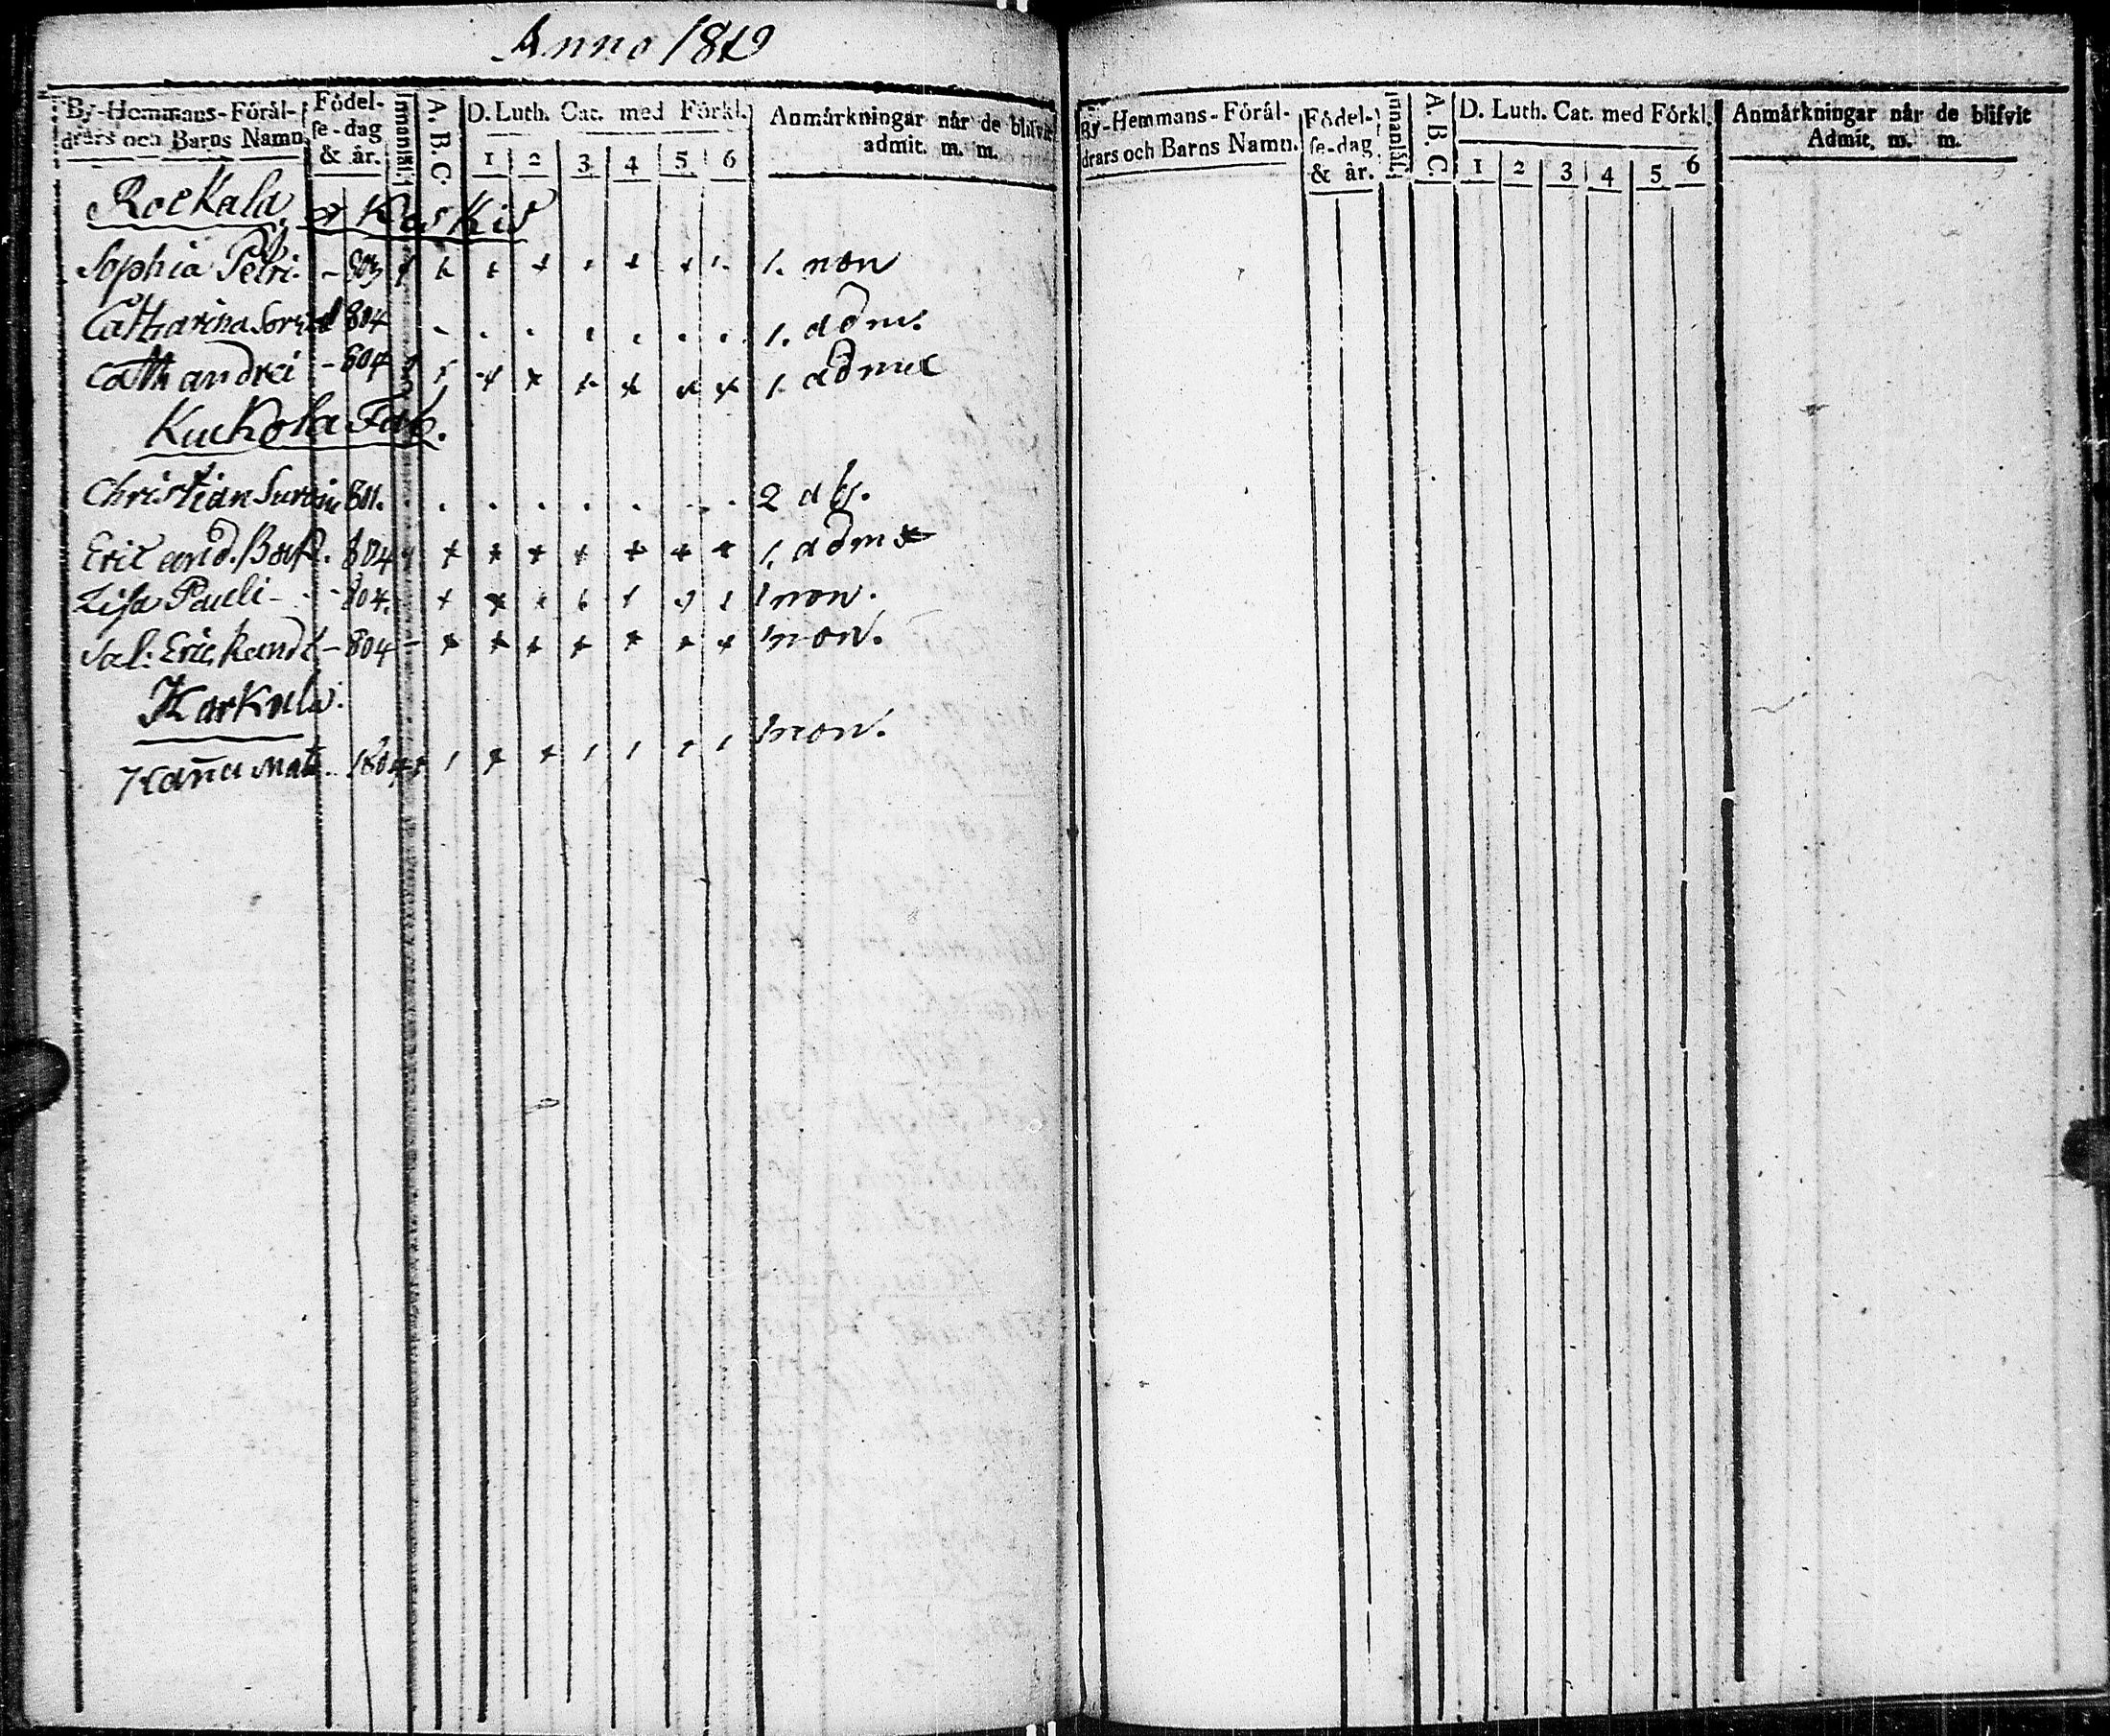 Anno 1819
By-Hemmans-Föräl-
drars och Barns Namn.
Födel-
se-dag
& år.
Innanläs.
A. B. C.
D. Luth. Cat. med Förkl.
1 2 3 4 5 6
Anmärkningar när de blifvit
admit. m. m.
Rockala, Koskis
Sophia Petri - 803 1. non
Catharina 804 1. adm.
Cath andrei - 804 1 admit
Kuckola
Christian 801. 2 abs.
Eric and. 804 1. adm
Lisa Pauli - 804. 1 non.
Sal: Eric - 804 - 1 non.
Karkula.
Kaña Matts 1804 1 non.
By-Hemmans-Föräl-
drars och Barns Namn.
Födel-
se-dag
& år.
Innanläs.
A. B. C.
D. Luth. Cat. med Förkl.
1 2 3 4 5 6
Anmärkningar när de blifvit
Admit. m. m.